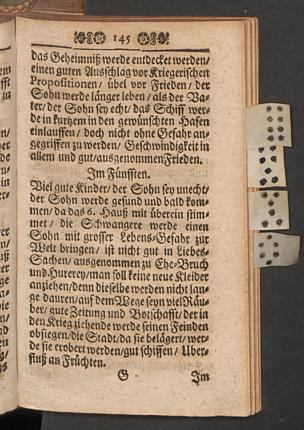 145
das Geheimniß werde entdecket werden/
einen guten Ausschlag vor Kriegerischen
Propositionen, übel vor Frieden/ der
Sohn werde länger leben/ als der Va-
ter/ der Sohn sey echt/ das Schiff wer-
de in kurtzem in den gewünschten Hafen
einlauffen/ doch nicht ohne Gefahr an-
gegriffen zu werden/ Geschwindigkeit in
allem und gut/ ausgenommen Frieden.
Im Fünfften.
Viel gute Kinder/ der Sohn sey unecht/
der Sohn werde gesund und bald kom-
men/ da das 6. Hauß mit überein stim-
met/ die Schwangere werde einen
Sohn mit grosser Lebens-Gefahr zur
Welt bringen/ ist nicht gut in Liebes-
Sachen/ ausgenommen zu Ehe-Bruch
und Hurerey/ man soll keine neue Kleider
anziehen/ denn dieselbe werden nicht lan-
ge dauren/ auf dem Wege seyn viel Räu-
ber/ gute Zeitung und Botschafft/ der in
den Krieg ziehende werde seinen Feinden
obsiegen/ die Stadt/ da sie belägert/ wer-
de sie erobert werden/ gut schiffen/ Uber-
fluß an Früchten.
G Im